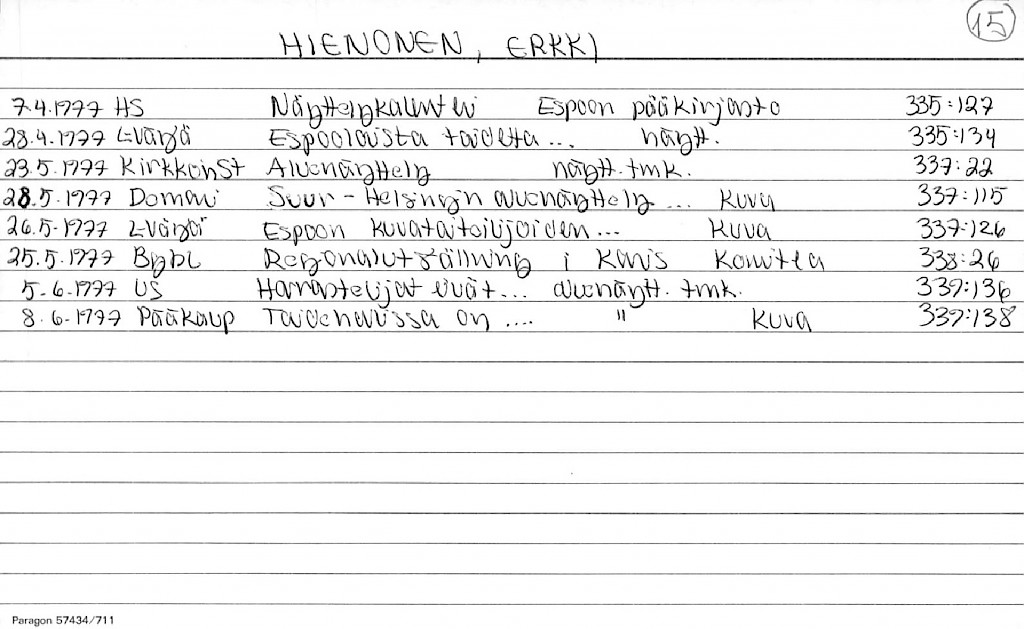 15
HIENONEN, ERKKI
7.4.1977 HS Näyttelykalenteri Espoon pääkirjasto 335:127
28.4.1977 Lväylä Espoolaista taidetta... näytt. 335:134
23.5.1977 Kirkkonst Aluenäyttely näytt.tmk. 337:22
28.5.1977 Domari Suur-Helsingin aluenäyttely... Kuva 337:115
26.5.1977 Lväylä Espoon kuvataiteilijoiden... Kuva 337:126
25.5.1977 Bybl Regionalutställning i Karis 338:26
5.6.1977 US Harrastelijat eivät... aluenäytt. tmk. 337:136
8.6.1977 Pääkaup Taidehallissa on .... " Kuva 337:138
Paragon 57434/711